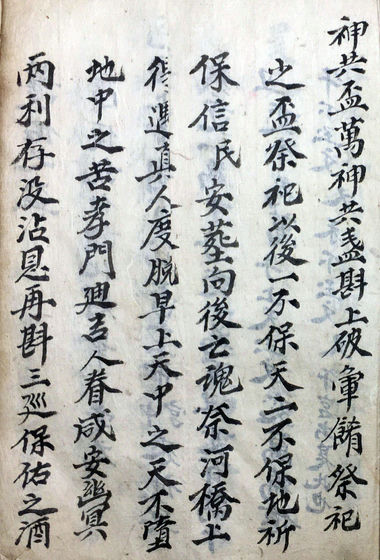 神共盃萬神共盞斟上破軍餚祭祀
之盃祭祀以後一不保天二不保地祈
保信民安塟向後亡魂奈河橋上
得進真人度脱早上天中之天不墮
地中之苦孝門迪吉人眷咸安幽冥
両利存没沾恩再斟三廵保佑之酒